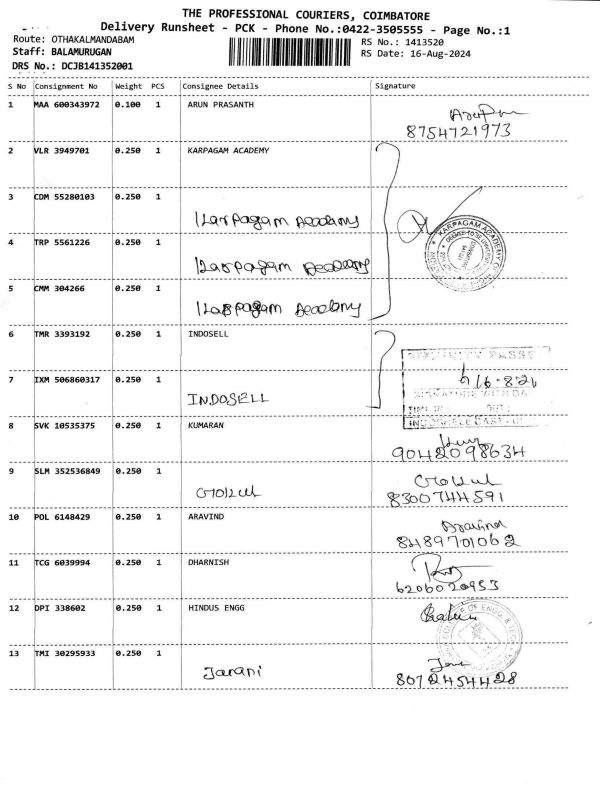 THE PROFESSIONAL COURIERS, COIMBATORE
Delivery Runsheet - PCK - Phone No.:0422-3505555 - Page No.:1
Route: OTHAKALMANDABAM
Staff: BALAMURUGAN
DRS No.: DCJB141352001
RS No.: 1413520
RS Date: 16-Aug-2024
S No Consignment No Weight PCS Consignee Details Signature
1 MAA 600343972 0.100 1 ARUN PRASANTH
8754721973
2 VLR 3949701 0.250 1 KARPAGAM ACADEMY
3 CDM 55280103 0.250 1
Karpagam Academy
KARPAGAM ACADEMY OF
4 TRP 5561226 0.250 1
Karpagam Academy
5 CMM 304266 0.250 1
Karpagam Academy
6 TMR 3393192 0.250 1 INDOSELL
7 IXM 506860317 0.250 1
INDOSELL
8 SVK 10535375 0.250 1 KUMARAN
9042098634
9 SLM 352536849 0.250 1
8300744591
10 POL 6148429 0.250 1 ARAVIND
Aravind
8489701062
11 TCG 6039994 0.250 1 DHARNISH
6206020953
12 DPI 338602 0.250 1 HINDUS ENGG
13 TMI 30295933 0.250 1
Jarani
8072454428